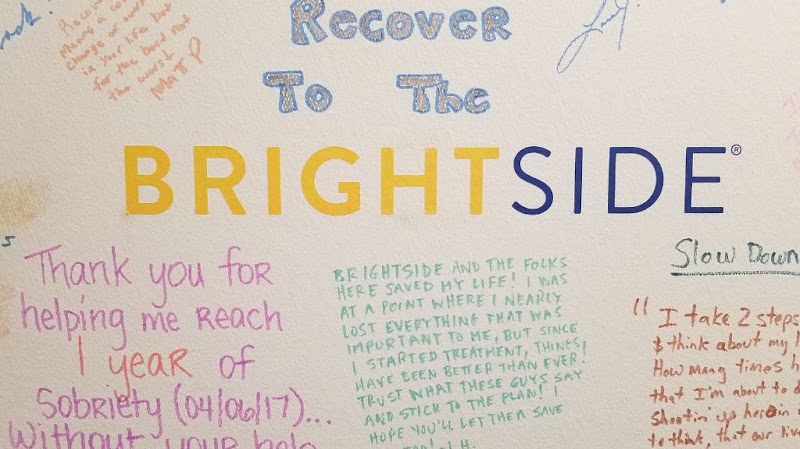 Recover
To The
BRIGHTSIDE®
Recov
Means a co
change of
in your life but
for the best not
the worst
Matt P
Thank you for
helping me Reach
1 year of
Sobriety (04/06/17)...
Without your help
BRIGHTSIDE AND THE FOLKS
HERE SAVED MY LIFE! I WAS
AT A POINT WHERE I NEARLY
LOST EVERYTHING THAT WAS
IMPORTANT TO ME, BUT SINCE
I STARTED TREATMENT, THINGS
HAVE BEEN BETTER THAN EVER!
TRUST WHAT THESE GUYS SAY
AND STICK TO THE PLAN! I
HOPE YOU'LL LET THEM SAVE
Slow Down
"I take 2 steps
& think about my l
How many times h
that I'm about to d
shootin' up heroin
to think, that our live